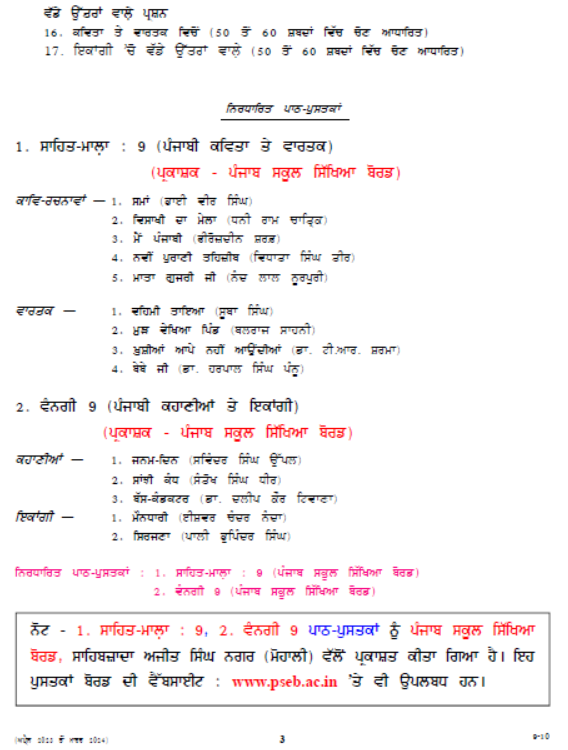 ਵੱਡੇ ਉੱਤਰਾਂ ਵਾਲ਼ੇ ਪ੍ਰਸ਼ਨ
16. ਕਵਿਤਾ ਤੇ ਵਾਰਤਕ ਵਿਚੋਂ (50 ਤੋਂ 60 ਸ਼ਬਦਾਂ ਵਿੱਚ ਚੋਣ ਆਧਾਰਿਤ)
17. ਇਕਾਂਗੀ 'ਚੋ ਵੱਡੇ ਉੱਤਰਾਂ ਵਾਲ਼ੇ (50 ਤੋਂ 60 ਸ਼ਬਦਾਂ ਵਿੱਚ ਚੋਣ ਆਧਾਰਿਤ)
ਨਿਰਧਾਰਿਤ ਪਾਠ-ਪੁਸਤਕਾਂ
1. ਸਾਹਿਤ-ਮਾਲ਼ਾ : 9 (ਪੰਜਾਬੀ ਕਵਿਤਾ ਤੇ ਵਾਰਤਕ)
(ਪ੍ਰਕਾਸ਼ਕ - ਪੰਜਾਬ ਸਕੂਲ ਸਿੱਖਿਆ ਬੋਰਡ)
ਕਾਵਿ-ਰਚਨਾਵਾਂ — 1. ਸਮਾਂ (ਭਾਈ ਵੀਰ ਸਿੰਘ)
2. ਵਿਸਾਖੀ ਦਾ ਮੇਲਾ (ਧਨੀ ਰਾਮ ਚਾਤ੍ਰਿਕ)
3. ਮੈਂ ਪੰਜਾਬੀ (ਫੀਰੋਜ਼ਦੀਨ ਸ਼ਰਫ਼)
4. ਨਵੀਂ ਪੁਰਾਣੀ ਤਹਿਜ਼ੀਬ (ਵਿਧਾਤਾ ਸਿੰਘ ਤੀਰ)
5. ਮਾਤਾ ਗੁਜਰੀ ਜੀ (ਨੰਦ ਲਾਲ ਨੂਰਪੁਰੀ)
ਵਾਰਤਕ — 1. ਵਹਿਮੀ ਤਾਇਆ (ਸੂਬਾ ਸਿੰਘ)
2. ਮੁੜ ਵੇਖਿਆ ਪਿੰਡ (ਬਲਰਾਜ ਸਾਹਨੀ)
3. ਖ਼ੁਸ਼ੀਆਂ ਆਪੇ ਨਹੀਂ ਆਉਂਦੀਆਂ (ਡਾ. ਟੀ.ਆਰ. ਸ਼ਰਮਾ)
4. ਬੇਬੇ ਜੀ (ਡਾ. ਹਰਪਾਲ ਸਿੰਘ ਪੰਨੂ)
2. ਵੰਨਗੀ 9 (ਪੰਜਾਬੀ ਕਹਾਣੀਆਂ ਤੇ ਇਕਾਂਗੀ)
(ਪ੍ਰਕਾਸ਼ਕ - ਪੰਜਾਬ ਸਕੂਲ ਸਿੱਖਿਆ ਬੋਰਡ)
ਕਹਾਣੀਆਂ — 1. ਜਨਮ-ਦਿਨ (ਸਵਿੰਦਰ ਸਿੰਘ ਉੱਪਲ)
2. ਸਾਂਝੀ ਕੰਧ (ਸੰਤੋਖ ਸਿੰਘ ਧੀਰ)
3. ਬੱਸ-ਕੰਡਕਟਰ (ਡਾ. ਦਲੀਪ ਕੌਰ ਟਿਵਾਣਾ)
ਇਕਾਂਗੀ — 1. ਮੌਨਧਾਰੀ (ਈਸ਼ਵਰ ਚੰਦਰ ਨੰਦਾ)
2. ਸਿਰਜਣਾ (ਪਾਲੀ ਭੁਪਿੰਦਰ ਸਿੰਘ)
ਨਿਰਧਾਰਿਤ ਪਾਠ-ਪੁਸਤਕਾਂ : 1. ਸਾਹਿਤ-ਮਾਲ਼ਾ : 9 (ਪੰਜਾਬ ਸਕੂਲ ਸਿੱਖਿਆ ਬੋਰਡ)
2. ਵੰਨਗੀ 9 (ਪੰਜਾਬ ਸਕੂਲ ਸਿੱਖਿਆ ਬੋਰਡ)
ਨੋਟ - 1. ਸਾਹਿਤ-ਮਾਲ਼ਾ : 9, 2. ਵੰਨਗੀ 9 ਪਾਠ-ਪੁਸਤਕਾਂ ਨੂੰ ਪੰਜਾਬ ਸਕੂਲ ਸਿੱਖਿਆ
ਬੋਰਡ, ਸਾਹਿਬਜ਼ਾਦਾ ਅਜੀਤ ਸਿੰਘ ਨਗਰ (ਮੋਹਾਲੀ) ਵੱਲੋਂ ਪ੍ਰਕਾਸ਼ਤ ਕੀਤਾ ਗਿਆ ਹੈ। ਇਹ
ਪੁਸਤਕਾਂ ਬੋਰਡ ਦੀ ਵੈੱਬਸਾਈਟ : www.pseb.ac.in 'ਤੇ ਵੀ ਉਪਲਬਧ ਹਨ।
3
9-10